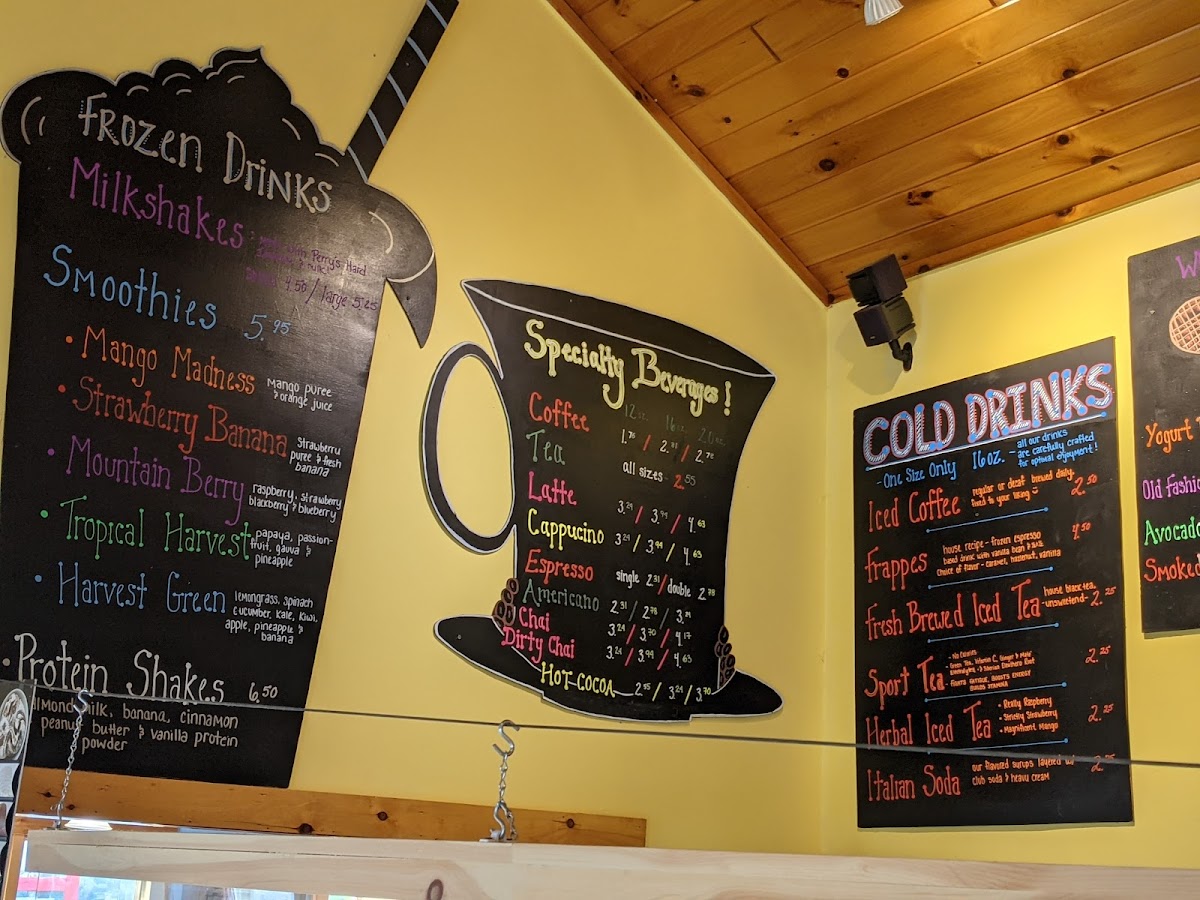 Frozen Drinks
Milkshakes
Perry's Hard
4.50 / large 5.25
Smoothies 5.95
• Mango Madness Mango puree
& orange juice
• Strawberry Banana Strawberry
puree & fresh
banana
• Mountain Berry raspberry, strawberry
blackberry & blueberry
• Tropical Harvest papaya, passion-
fruit, gauva &
pineapple
• Harvest Green lemongrass, spinach
cucumber, kale, kiwi,
apple, pineapple &
banana
• Protein Shakes 6.50
almond milk, banana, cinnamon
peanut butter & vanilla protein
powder
Specialty Beverages!
12 oz. 16 oz. 20 oz.
Coffee / / 2.78
Tea all sizes - 2.55
Latte 3.24 / 3.94 / 4.63
Cappucino 3.24 / 3.94 / 4.63
Espresso single 2.31 / double 2.78
Americano 2.31 / 2.78 / 3.24
Chai 3.24 / 3.70 / 4.17
Dirty Chai 3.24 / 3.94 / 4.63
Hot-Cocoa 2.55 / 3.24 / 3.70
COLD DRINKS
- One Size Only 16 oz. - all our drinks
are carefully crafted
for optimal enjoyment!
Iced Coffee regular or decaf brewed daily, 2.50
iced to your liking
Frappes house recipe - frozen espresso 4.50
based drink with vanilla bean &
choice of flavor - caramel, hazelnut, vanilla
Fresh Brewed Iced Tea house black tea, 2.25
-unsweetened-
Sport Tea - No Calories 2.25
- Green Tea, Vitamin C, Ginger &
- Fights Fatigue, Boosts Energy
Builds Stamina
Herbal Iced Tea • Really Raspberry 2.25
• Strictly Strawberry
• Magnificent Mango
Italian Soda our flavored syrups layered
club soda & heavu cream
W
Yogurt
Old Fashio
Avocado
Smoked